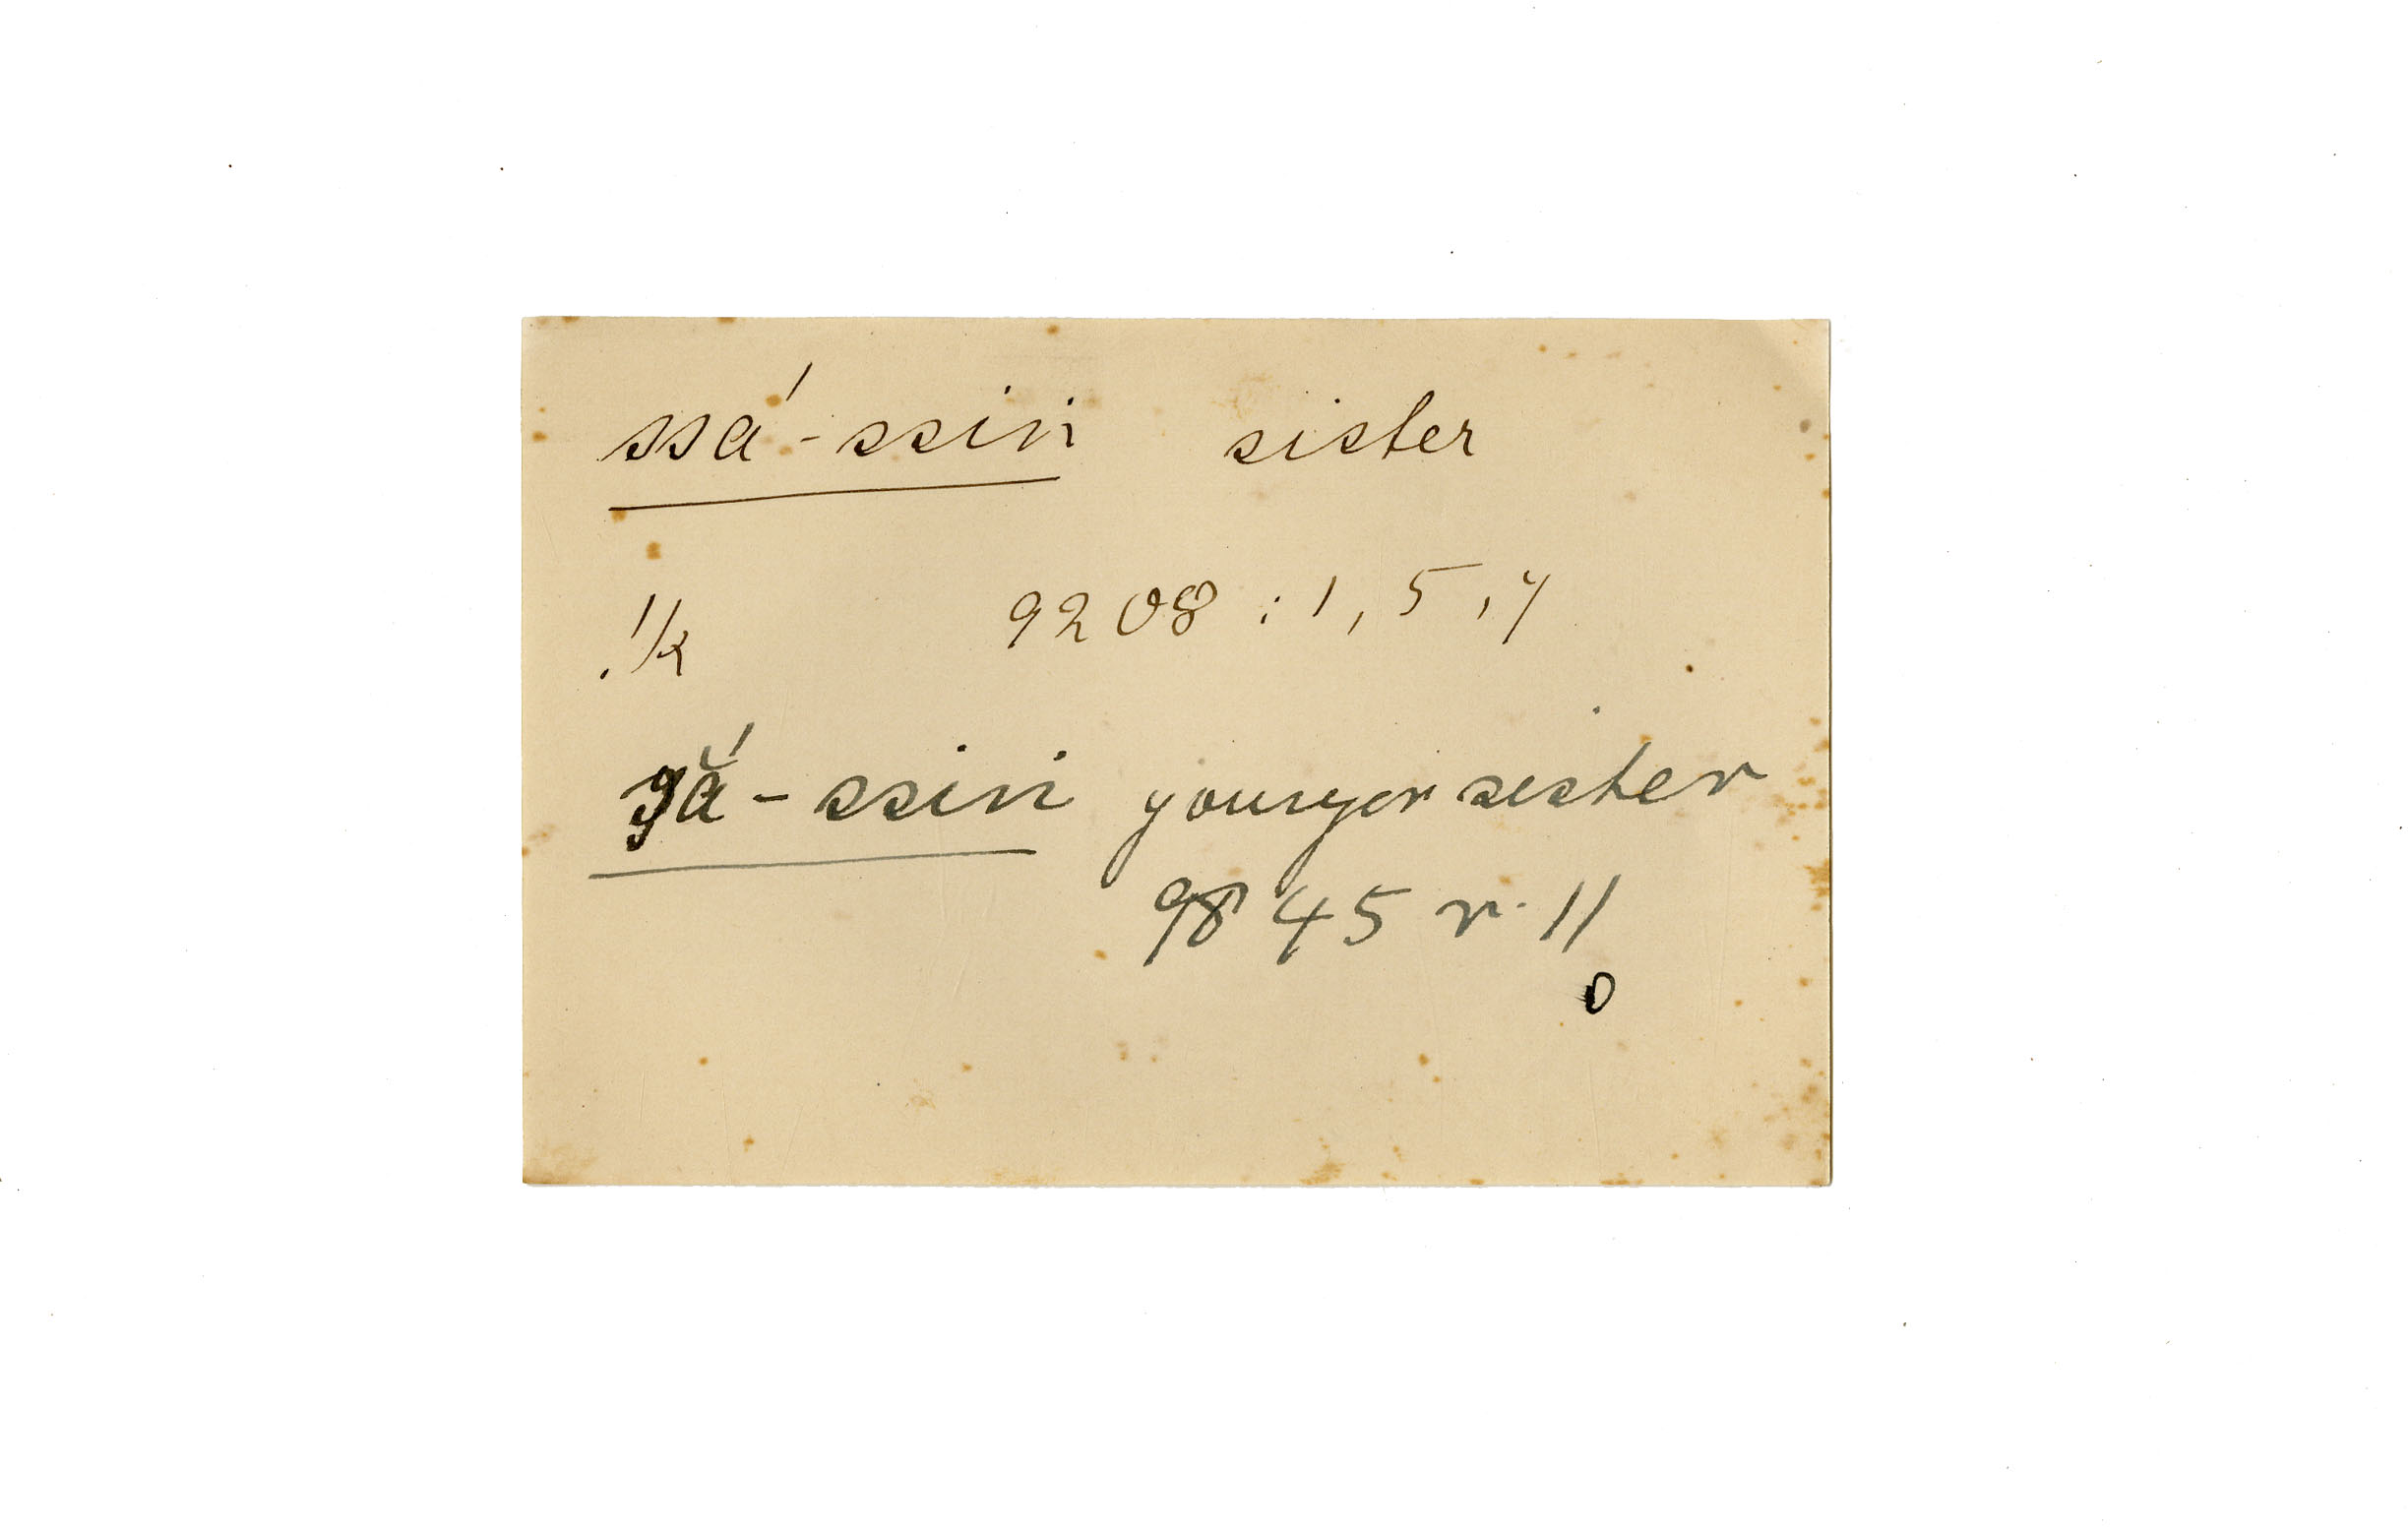 ssá-ssin sister
!k 9208 : 1, 5, 7
gắ-ssin younger sister
9845 r. 11
0